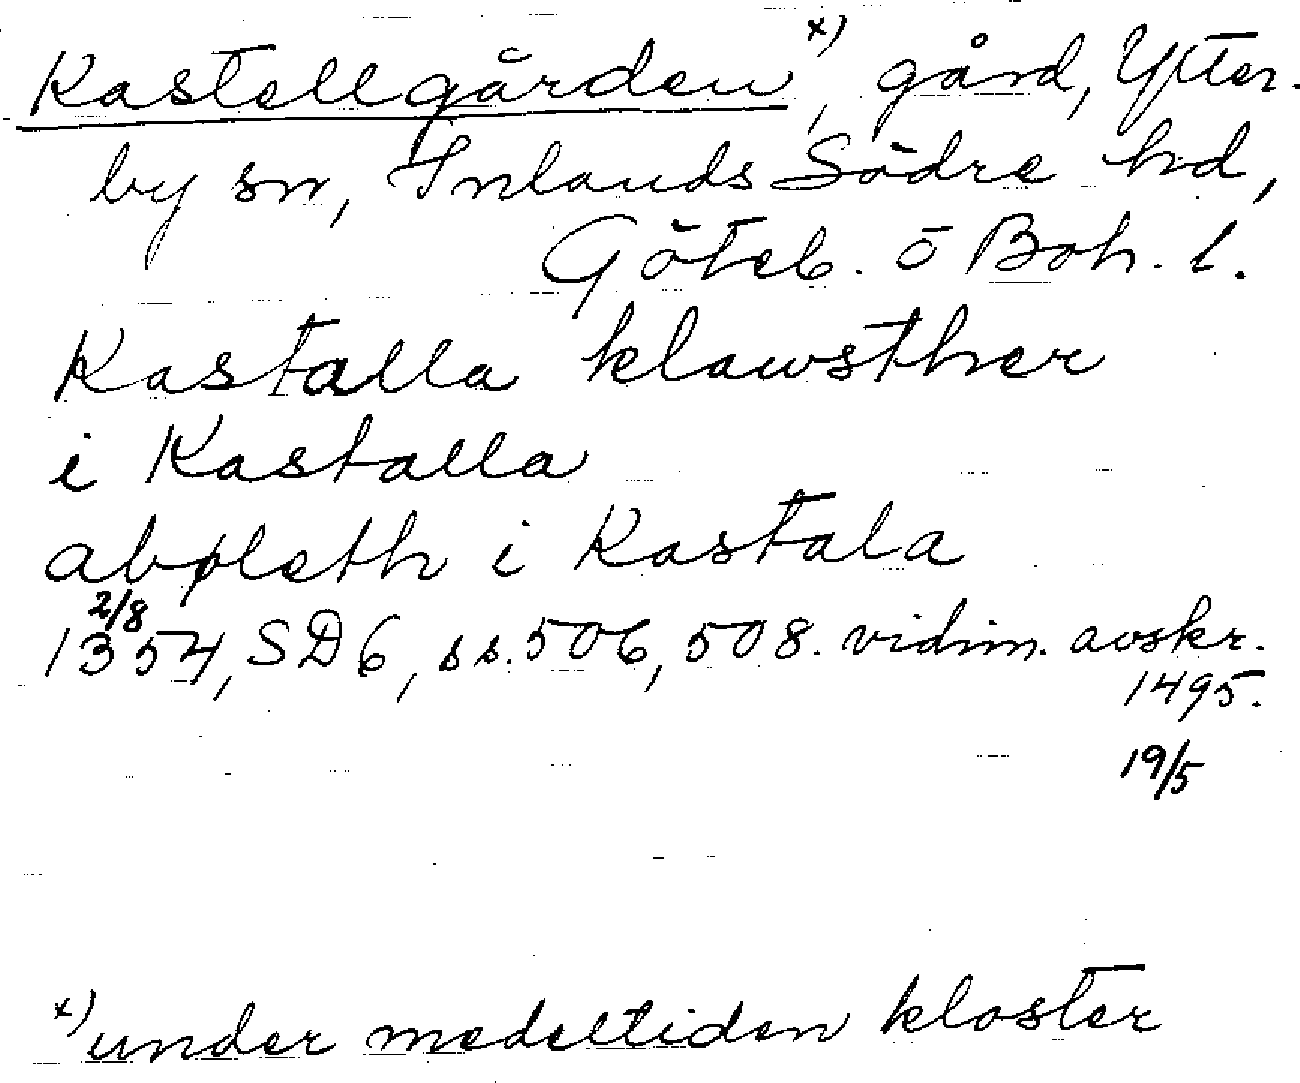 Kastellgården x), gård, Ytter-
by sn, Inlands Södre hd,
Göteb. o Boh. l.
Kastalla klawsther
i Kastalla
abøleth i Kastala
2/8
1354, SD6, ss. 506, 508. vidim. avskr.
1495.
19/5
x) under medeltiden kloster